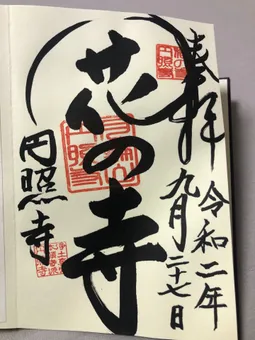 奉拝
令和二年
九月二十七日
花の寺
円照寺